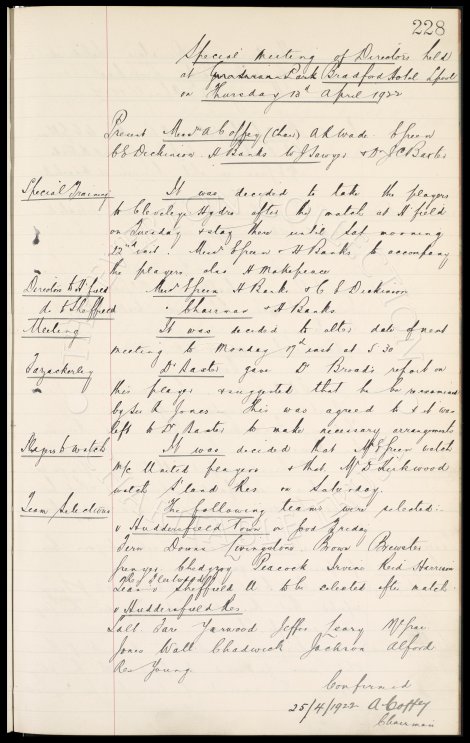 228
Special meeting of Directors held
at Bradford Hotel L'pool
on Thursday 13th April 1922
Present Messrs A Coffey (Chair) A R Wade. E Green
C E Dickinson. H Banks W J Sawyer & Dr J C Baxter
Special Training It was decided to take the players
to Cleveleys Hydro after the match at H'field
on Tuesday & stay there until Sat morning
22nd inst. Messrs E Green & H Banks to accompany
the players also H Makepeace
Directors to H'field Messrs E Green H Banks & C E Dickinson
do to Sheffield " Chairman & H Banks
Meeting It was decided to alter date of next
meeting to Monday 17th inst at 5.30
Fazackerley Dr Baxter gave Dr Broad's report on
this player & suggested that he be examined
by Sir R Jones. This was agreed to & it was
left to Dr Baxter to make necessary arrangements
Players to watch It was decided that Mr E Green watch
M/c United players & that Mr D Kirkwood
watch S'land Res on Saturday.
Team Selections The following teams were selected:-
v Huddersfield Town on Good Friday
Fern Downs Livingstone Brown Brewster
Chedgzoy Peacock Irvine Reid Harrison
Team v Sheffield U. to be selected after match
v Huddersfield Res
Salt Fare Yarwood Jeffes Leary McGrae
Jones Wall Chadwick Jackson Alford
Res Young
Confirmed
25/4/1922 A Coffey
Chairman